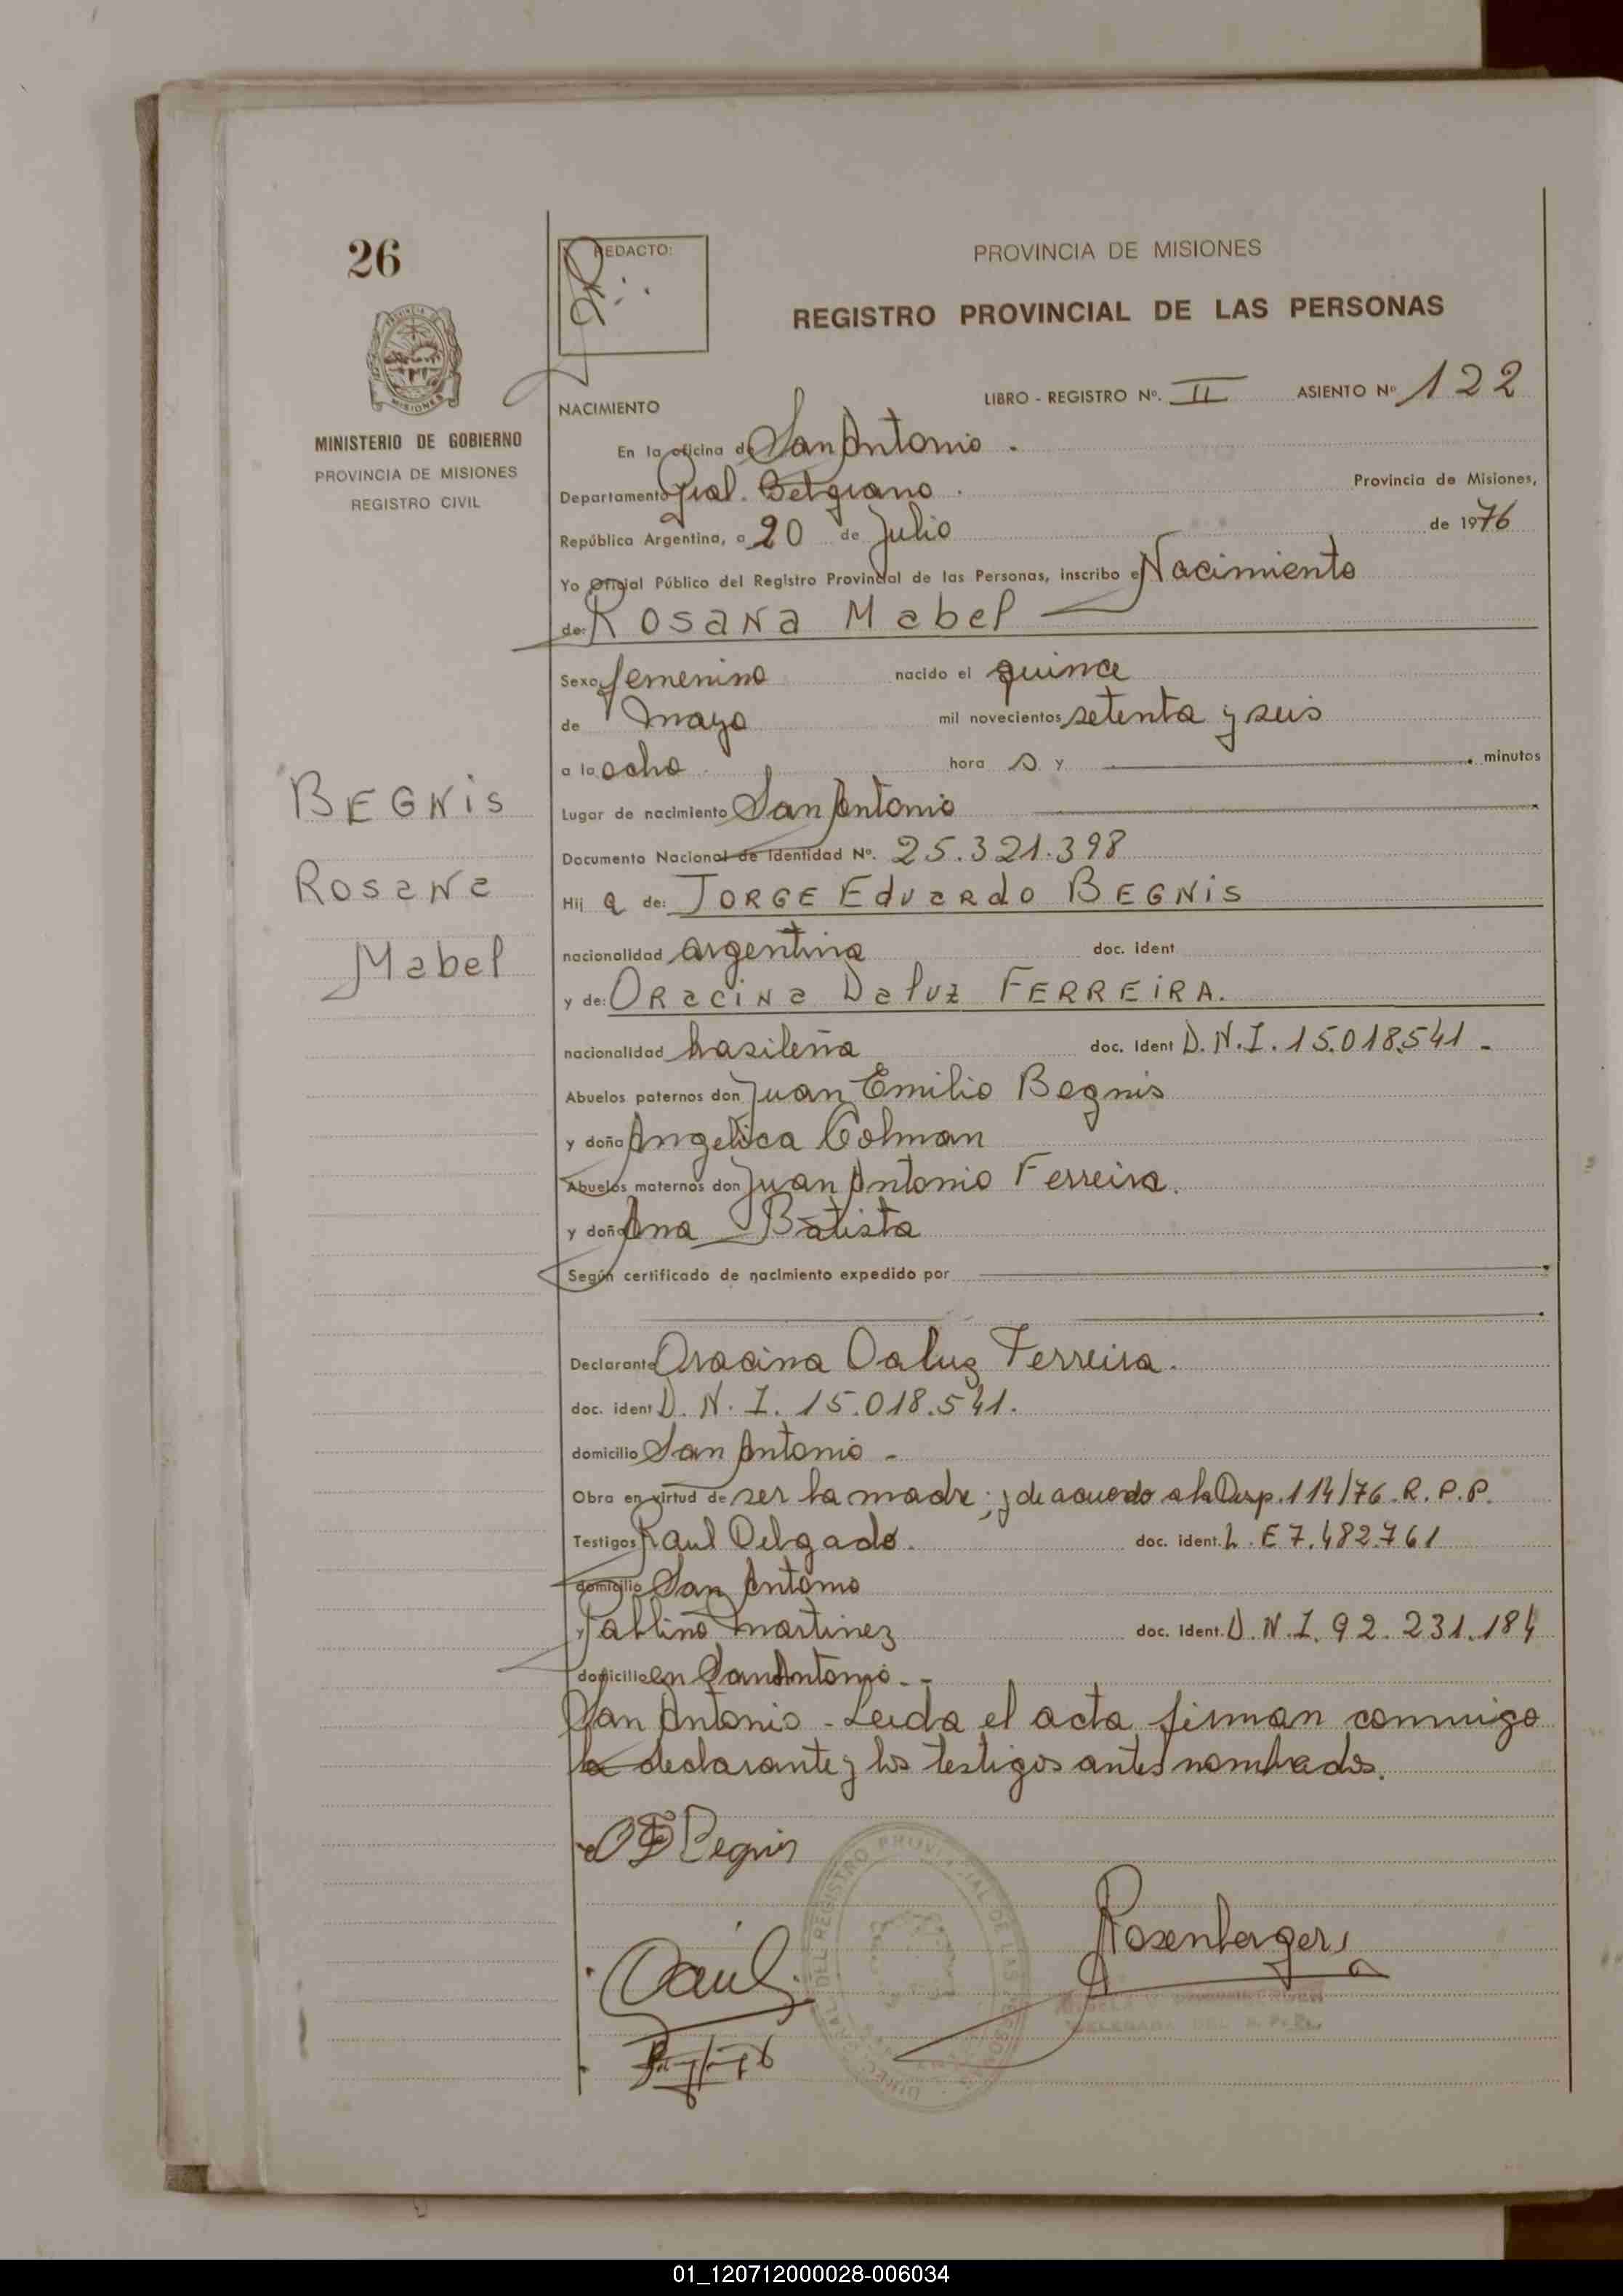 26
REDACTO:
PROVINCIA DE MISIONES
REGISTRO PROVINCIAL DE LAS PERSONAS
MINISTERIO DE GOBIERNO
PROVINCIA DE MISIONES
REGISTRO CIVIL
NACIMIENTO
LIBRO - REGISTRO Nº. II ASIENTO Nº 122
En la oficina de San Antonio .
Departamento Gral. Belgrano . Provincia de Misiones,
República Argentina, a 20 de Julio de 1976
Yo Oficial Público del Registro Provincial de las Personas, inscribo el Nacimiento
de: ROSANA Mabel
Sexo femenino nacido el quince
de mayo mil novecientos setenta y seis
a la ocho hora s y minutos
BEGNIS
Rosana
Mabel
Lugar de nacimiento San Antonio
Documento Nacional de Identidad Nº. 25.321.398
Hij a de: JORGE Eduardo BEGNIS
nacionalidad argentina doc. ident
y de: ORacina Daluz FERREIRA.
nacionalidad brasileña doc. Ident D.N.I. 15.018.541 -
Abuelos paternos don Juan Emilio Begnis
y doña Angelica Colman
Abuelos maternos don Juan Antonio Ferreira.
y doña Ana Batista
Según certificado de nacimiento expedido por
Declarante Oracina Daluz Ferreira.
doc. ident D.N.I. 15.018.541.
domicilio San Antonio -
Obra en virtud de ser la madre; y de acuerdo a la Disp. 114/76 R.P.P.
Testigos Raul Delgado. doc. ident. L.E 7.482.761
domicilio San Antonio
y Pablino Martinez doc. Ident. D.N.I. 92.231.184
domicilio en San Antonio. -
San Antonio - Leida el acta firman conmigo
la declarante y los testigos antes nombrados.
O F Begnis
Rosenberger
DELEGADA DEL R.P.P.
01_120712000028-006034